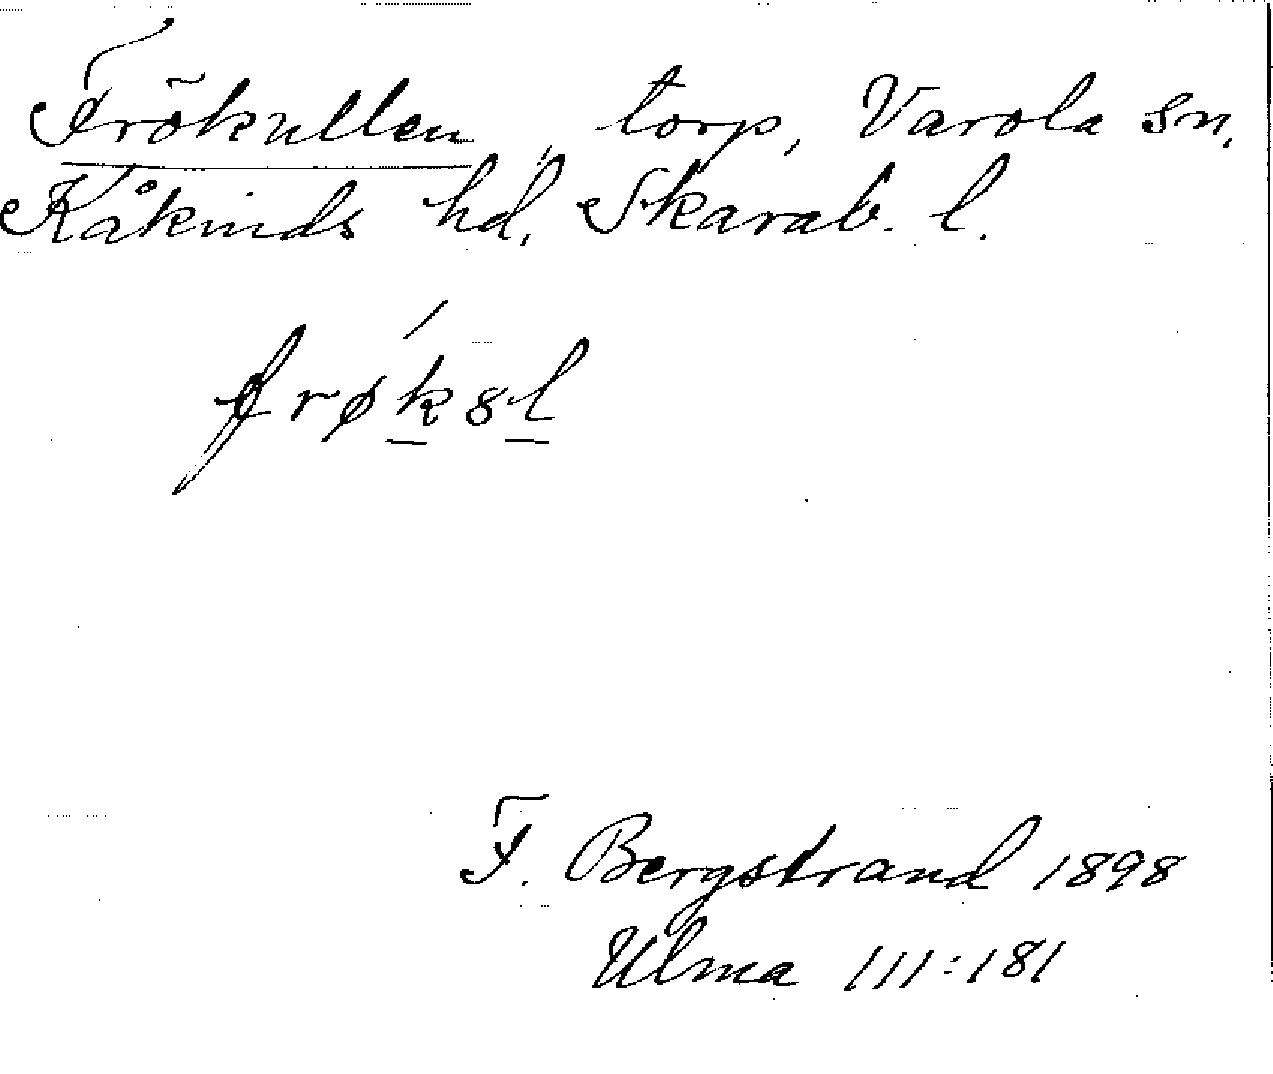 Frökullen, torp, Varola sn,
Kåkinds hd, Skarab. l.
frøk8l
F. Bergstrand 1898
Ulma 111:181